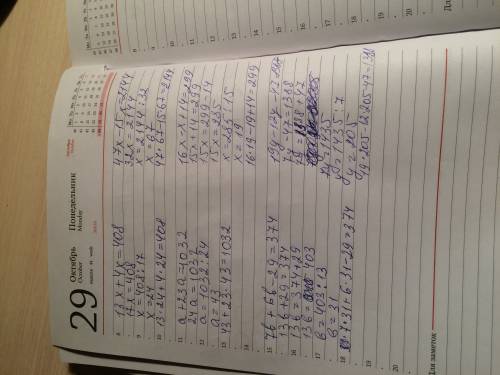 29
Октябрь
October
Понедельник
Monday
13x+4x=408
17x=408
x=408:17
x=24
13·24+4·24=408
a+23a=1032
24a=1032
a=1032:24
a=43
43+23·43=1032
7b+6b-29=374
13b+29=374
13b=374+29
13b=403
b=403:13
b=31
7·31+6·31-29=374
47x-15x=2144
32x=2144
x=2144:32
x=67
47·67-15·67=2144
16x-x+14=299
15x+14=299
15x=299-14
15x=285
x=285:15
x=19
16·19-19+14=299
19y-12y-47=1388
7y-47=1388
7y=1388+47
7y=1435
y=1435:7
y=205
19·205-12·205-47=1388
Для заметок